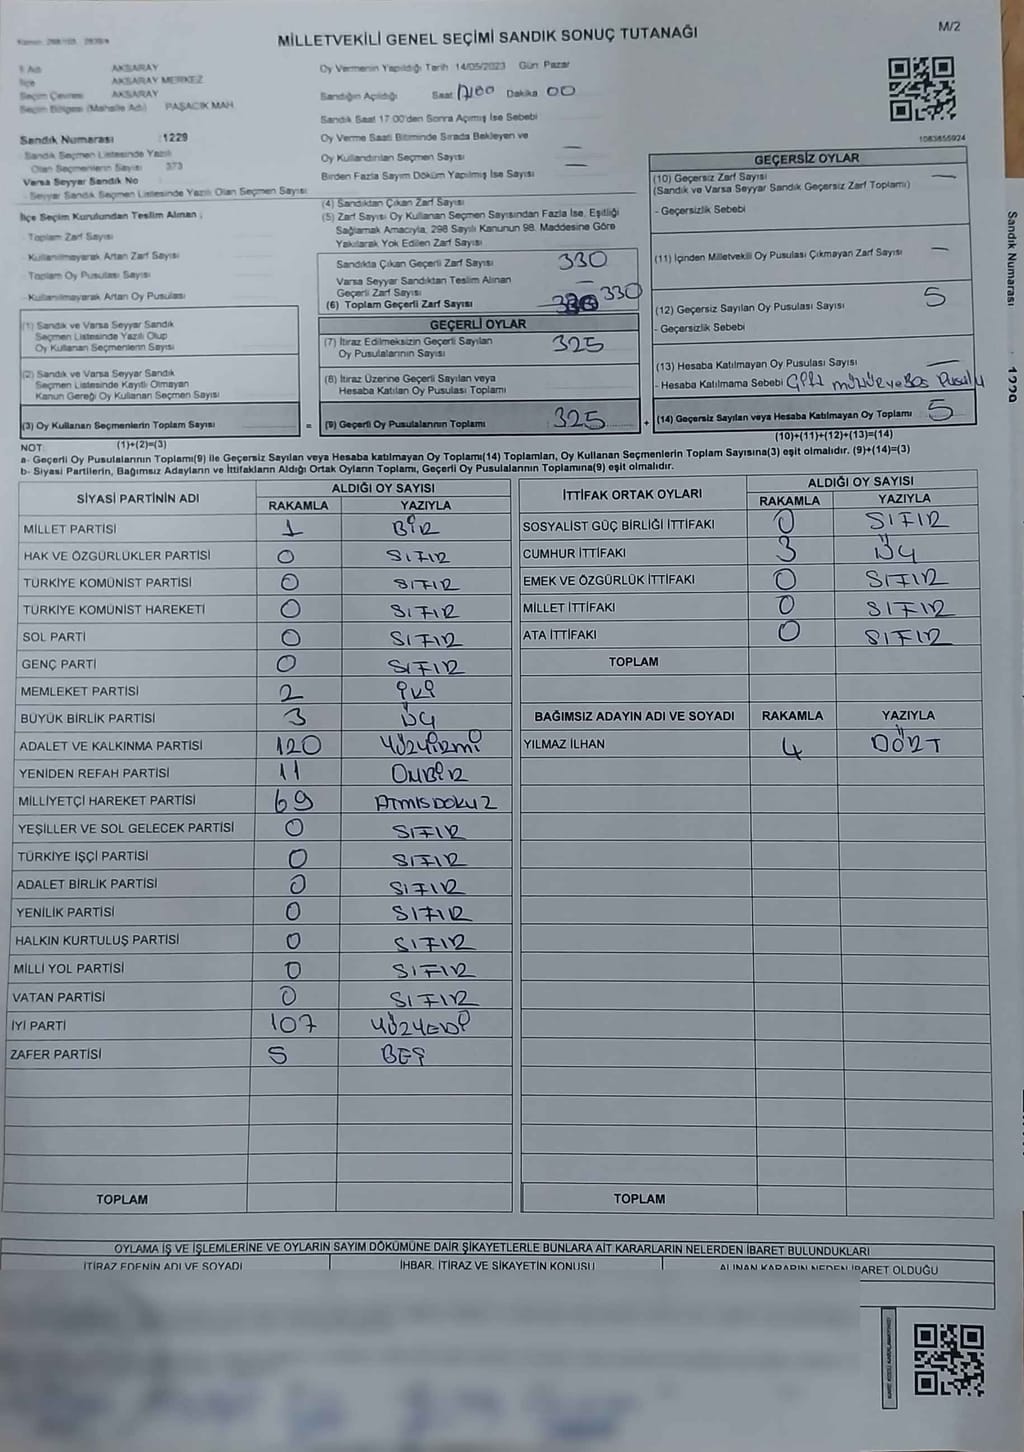 M/2
MİLLETVEKİLİ GENEL SEÇİMİ SANDIK SONUÇ TUTANAĞI
İl Adı AKSARAY
İlçe AKSARAY MERKEZ
Seçim Çevresi AKSARAY
Seçim Bölgesi (Mahalle Adı) PAŞACIK MAH.
Sandık Numarası : 1229
Sandık Seçmen Listesinde Yazılı
Olan Seçmenlerin Sayısı 373
Varsa Seyyar Sandık No
Seyyar Sandık Seçmen Listesinde Yazılı Olan Seçmen Sayısı
İlçe Seçim Kurulundan Teslim Alınan ;
- Toplam Zarf Sayısı
- Kullanılmayarak Artan Zarf Sayısı
- Toplam Oy Pusulası Sayısı
- Kullanılmayarak Artan Oy Pusulası
(1) Sandık ve Varsa Seyyar Sandık
Seçmen Listesinde Yazılı Olup
Oy Kullanan Seçmenlerin Sayısı
(2) Sandık ve Varsa Seyyar Sandık
Seçmen Listesinde Kayıtlı Olmayan
Kanun Gereği Oy Kullanan Seçmen Sayısı
(3) Oy Kullanan Seçmenlerin Toplam Sayısı =
Oy Vermenin Yapıldığı Tarih 14/05/2023 Gün: Pazar
Sandığın Açıldığı Saat 17:00 Dakika 00
Sandık Saat 17:00'den Sonra Açılmış İse Sebebi
Oy Verme Saati Bitiminde Sırada Bekleyen ve
Oy Kullandırılan Seçmen Sayısı —
Birden Fazla Sayım Döküm Yapılmış İse Sayısı —
(4) Sandıktan Çıkan Zarf Sayısı
(5) Zarf Sayısı Oy Kullanan Seçmen Sayısından Fazla İse, Eşitliği
Sağlamak Amacıyla, 298 Sayılı Kanunun 98. Maddesine Göre
Yakılarak Yok Edilen Zarf Sayısı
Sandıkta Çıkan Geçerli Zarf Sayısı 330
Varsa Seyyar Sandıktan Teslim Alınan
Geçerli Zarf Sayısı —
(6) Toplam Geçerli Zarf Sayısı 330
GEÇERLİ OYLAR
(7) İtiraz Edilmeksizin Geçerli Sayılan
Oy Pusulalarının Sayısı 325
(8) İtiraz Üzerine Geçerli Sayılan veya
Hesaba Katılan Oy Pusulası Toplamı
(9) Geçerli Oy Pusulalarının Toplamı 325 +
1083655924
GEÇERSİZ OYLAR
(10) Geçersiz Zarf Sayısı —
(Sandık ve Varsa Seyyar Sandık Geçersiz Zarf Toplamı)
- Geçersizlik Sebebi
(11) İçinden Milletvekili Oy Pusulası Çıkmayan Zarf Sayısı —
(12) Geçersiz Sayılan Oy Pusulası Sayısı 5
- Geçersizlik Sebebi
(13) Hesaba Katılmayan Oy Pusulası Sayısı —
- Hesaba Katılmama Sebebi
(14) Geçersiz Sayılan veya Hesaba Katılmayan Oy Toplamı 5
(10)+(11)+(12)+(13)=(14)
NOT: (1)+(2)=(3)
a- Geçerli Oy Pusulalarının Toplamı(9) ile Geçersiz Sayılan veya Hesaba katılmayan Oy Toplamı(14) Toplamları, Oy Kullanan Seçmenlerin Toplam Sayısına(3) eşit olmalıdır. (9)+(14)=(3)
b- Siyasi Partilerin, Bağımsız Adayların ve İttifakların Aldığı Ortak Oyların Toplamı, Geçerli Oy Pusulalarının Toplamına(9) eşit olmalıdır.
SİYASİ PARTİNİN ADI ALDIĞI OY SAYISI
RAKAMLA YAZIYLA
MİLLET PARTİSİ 1 BİR
HAK VE ÖZGÜRLÜKLER PARTİSİ 0 SIFIR
TÜRKİYE KOMÜNİST PARTİSİ 0 SIFIR
TÜRKİYE KOMÜNİST HAREKETİ 0 SIFIR
SOL PARTİ 0 SIFIR
GENÇ PARTİ 0 SIFIR
MEMLEKET PARTİSİ 2 İKİ
BÜYÜK BİRLİK PARTİSİ 3 ÜÇ
ADALET VE KALKINMA PARTİSİ 120 YÜZYİRMİ
YENİDEN REFAH PARTİSİ 11 ONBİR
MİLLİYETÇİ HAREKET PARTİSİ 69 ATMIŞDOKUZ
YEŞİLLER VE SOL GELECEK PARTİSİ 0 SIFIR
TÜRKİYE İŞÇİ PARTİSİ 0 SIFIR
ADALET BİRLİK PARTİSİ 0 SIFIR
YENİLİK PARTİSİ 0 SIFIR
HALKIN KURTULUŞ PARTİSİ 0 SIFIR
MİLLİ YOL PARTİSİ 0 SIFIR
VATAN PARTİSİ 0 SIFIR
İYİ PARTİ 107 YÜZYEDİ
ZAFER PARTİSİ 5 BEŞ
TOPLAM
İTTİFAK ORTAK OYLARI ALDIĞI OY SAYISI
RAKAMLA YAZIYLA
SOSYALİST GÜÇ BİRLİĞİ İTTİFAKI 0 SIFIR
CUMHUR İTTİFAKI 3 ÜÇ
EMEK VE ÖZGÜRLÜK İTTİFAKI 0 SIFIR
MİLLET İTTİFAKI 0 SIFIR
ATA İTTİFAKI 0 SIFIR
TOPLAM
BAĞIMSIZ ADAYIN ADI VE SOYADI RAKAMLA YAZIYLA
YILMAZ İLHAN 4 DÖRT
TOPLAM
OYLAMA İŞ VE İŞLEMLERİNE VE OYLARIN SAYIM DÖKÜMÜNE DAİR ŞİKAYETLERLE BUNLARA AİT KARARLARIN NELERDEN İBARET BULUNDUKLARI
İTİRAZ EDENİN ADI VE SOYADI İHBAR, İTİRAZ VE ŞİKAYETİN KONUSU ALINAN KARARIN NEDEN İBARET OLDUĞU
Sandık Numarası : 1229